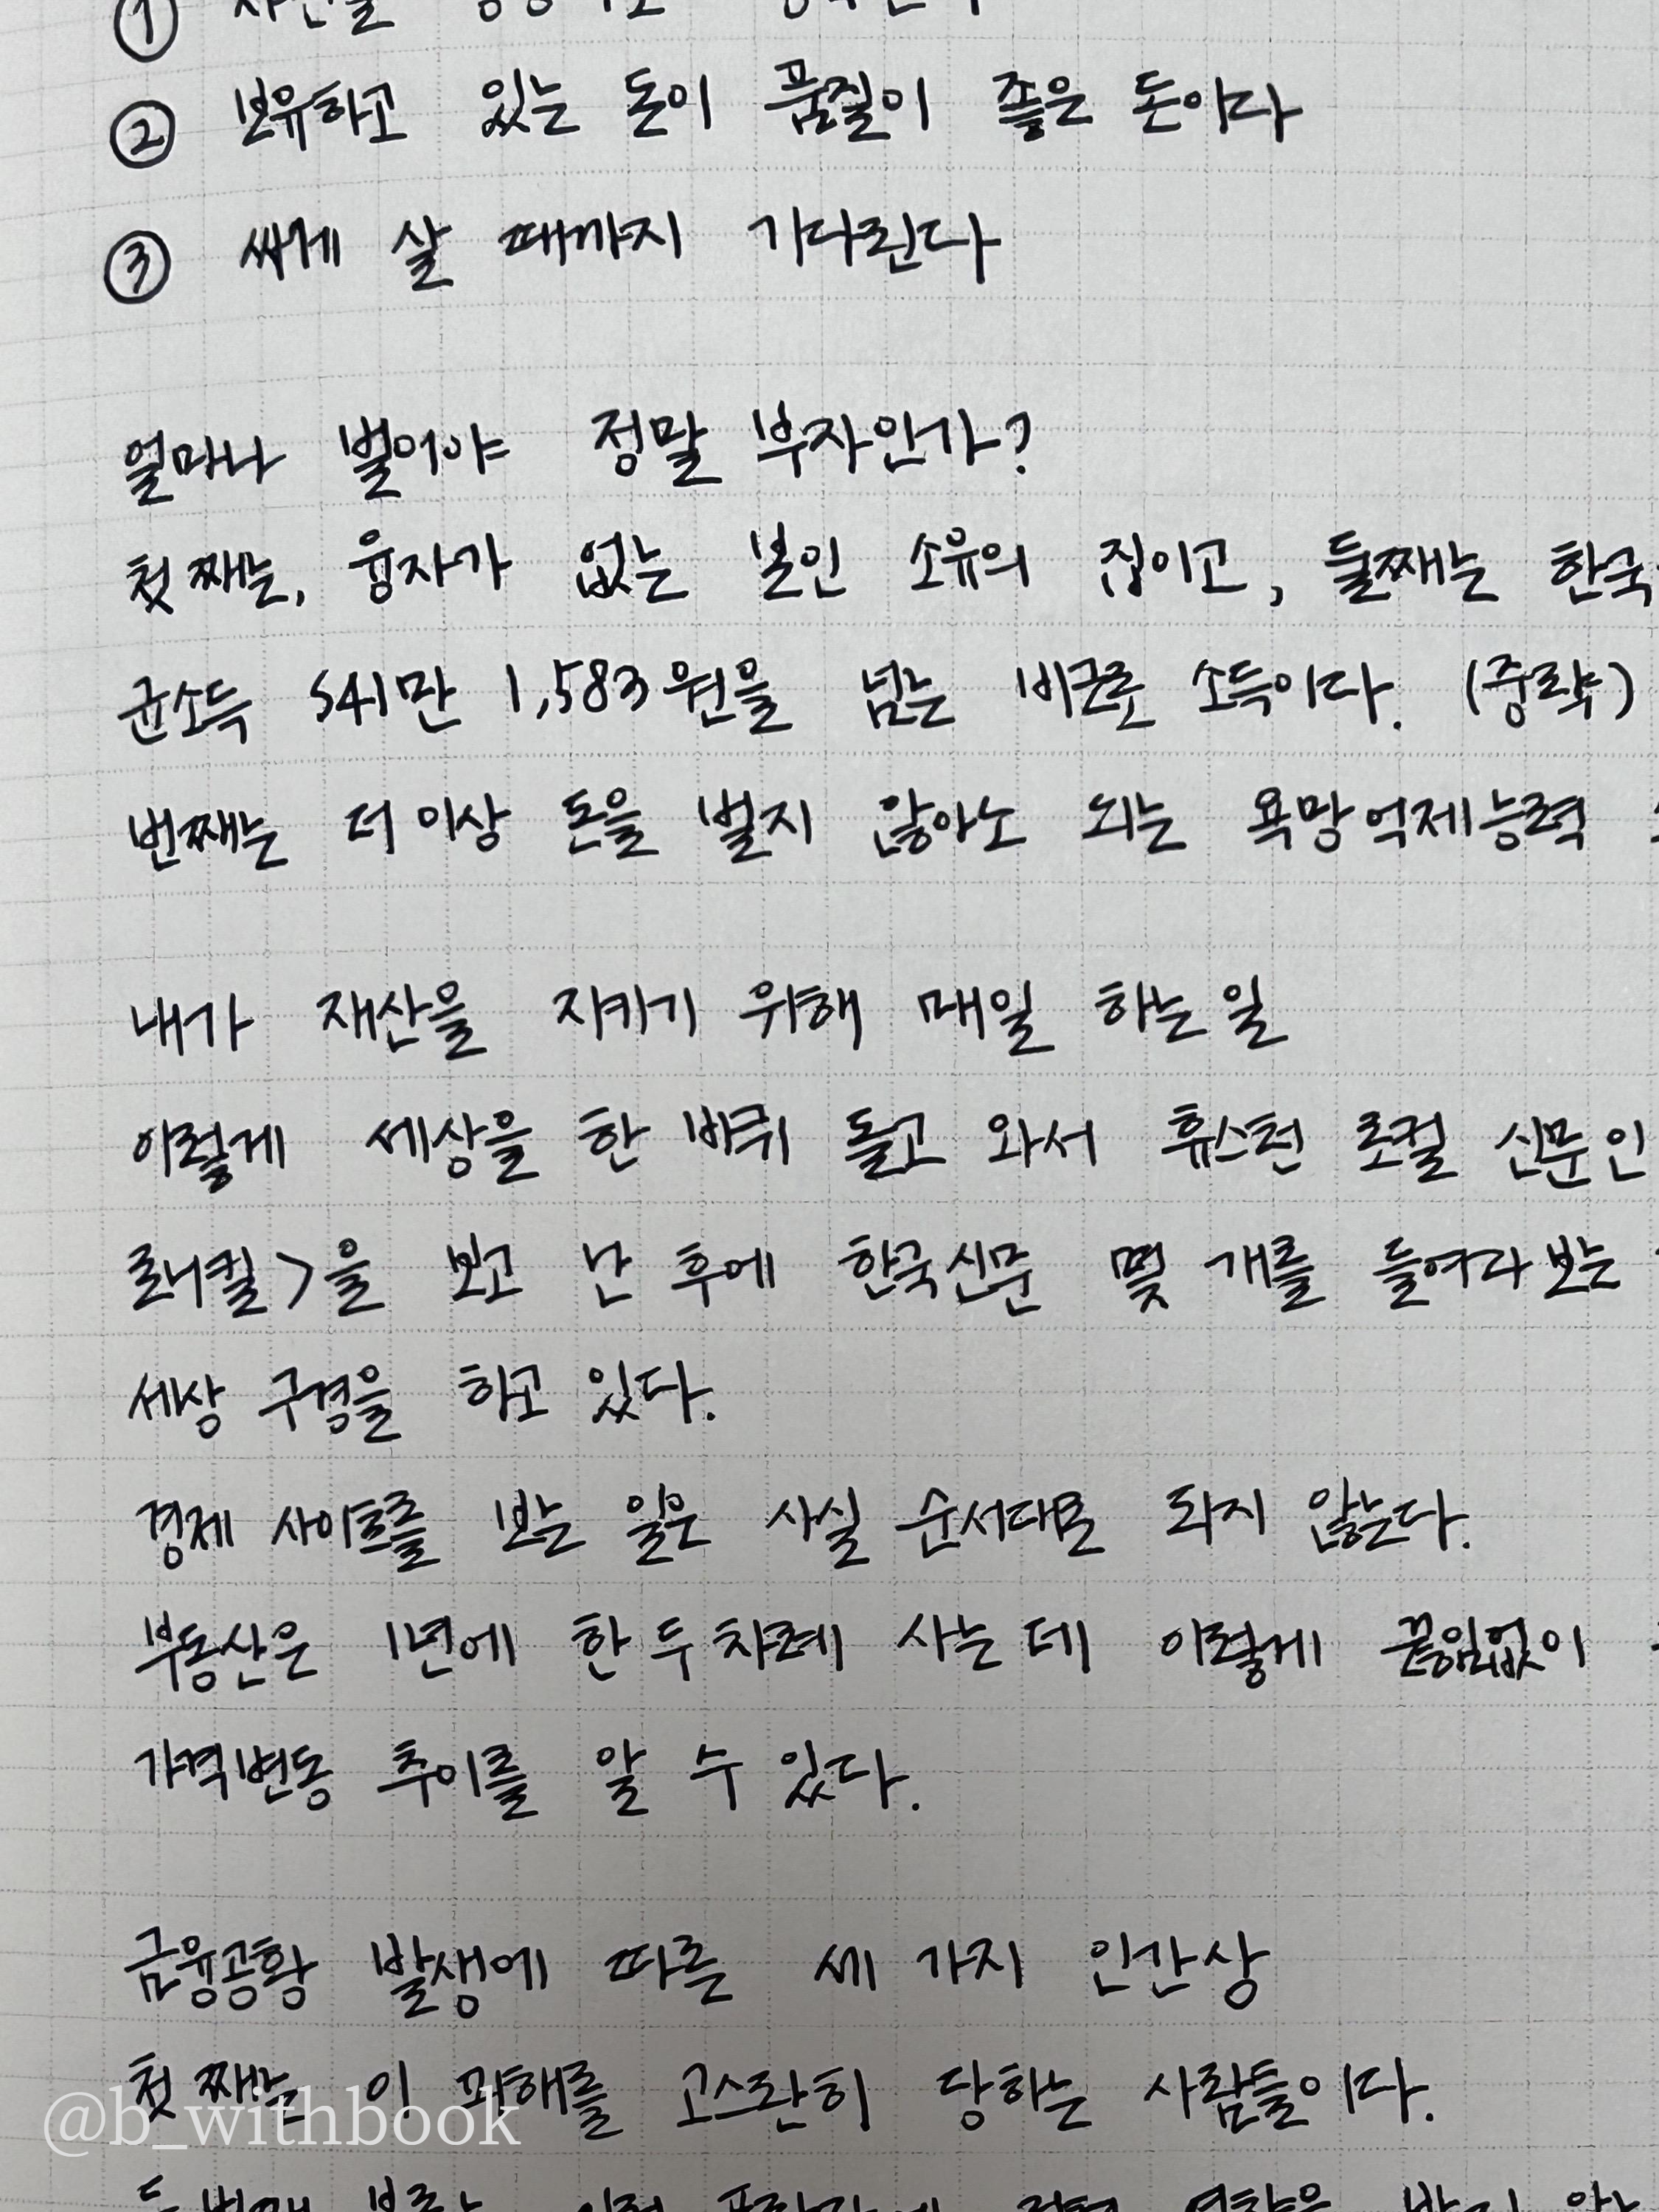 ①
② 보유하고 있는 돈이 품질이 좋은 돈이다
③ 싸게 살 때까지 기다린다
얼마나 벌어야 정말 부자인가?
첫째는, 융자가 없는 본인 소유의 집이고, 둘째는 한국
균소득 541만 1,583원을 넘는 비근로 소득이다. (중략)
번째는 더 이상 돈을 벌지 않아도 되는 욕망억제능력
내가 재산을 지키기 위해 매일 하는 일
이렇게 세상을 한 바퀴 돌고 와서 휴스턴 로컬 신문인
로니컬>을 보고 난 후에 한국신문 몇 개를 들여다보는
세상 구경을 하고 있다.
경제 사이트를 보는 일은 사실 순서대로 되지 않는다.
부동산은 1년에 한두 차례 사는데 이렇게 끝임없이
가격변동 추이를 알 수 있다.
금융공황 발생에 따른 세 가지 인간상
첫째는 이 피해를 고스란히 당하는 사람들이다.
@b_withbook